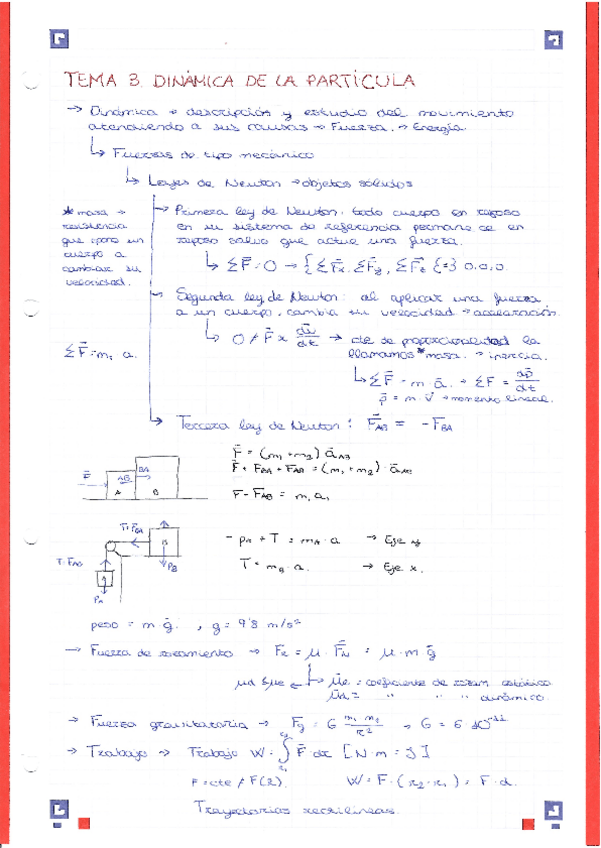 TEMA 3. DINÁMICA DE LA PARTÍCULA
→ Dinámica → descripción y estudio del movimiento
atendiendo a sus causas → Fuerza. → Energía.
↳ Fuerzas de tipo mecánico
↳ Leyes de Newton → objetos sólidos
* masa →
resistencia
que opone un
cuerpo a
cambiar su
velocidad.
→ Primera ley de Newton: todo cuerpo en reposo
en su sistema de referencia permanece en
reposo salvo que actúe una fuerza.
↳ ΣF̄ = 0 → { ΣFx, ΣFy, ΣFz {=} 0,0,0.
→ Segunda ley de Newton: al aplicar una fuerza
a un cuerpo, cambia su velocidad → aceleración.
ΣF̄ = m, a.
↳ 0 ≠ F̄ ∝ dv̄/dt → cte de proporcionalidad la
llamamos *masa. → inercia.
↳ ΣF̄ = m · ā. → ΣF = dp̄/dt
p̄ = m · v̄ → momento lineal.
→ Tercera ley de Newton: F̄AB = -F̄BA
F̄ = (m₁ + m₂) āAB
F̄ + F̄BA + F̄AB = (m₁ + m₂) · āAB
F̄ AB BA
A B
F - F̄AB = m₁a₁
T · F̄BA
B
T · F̄AB
PB
A
PA
- PA + T = mA · a → Eje y
T = mB · a. → Eje x.
peso = m · ḡ. , g = 9'8 m/s²
→ Fuerza de rozamiento → FR = μ · F̄N = μ · m · ḡ
μd ≤ μe ← ↳ μ̄e = coeficiente de rozam. estático
μ̄d = " " " dinámico.
→ Fuerza gravitatoria → F̄g = G m₁ m₂/r² , G = 6'10⁻¹¹
→ Trabajo → Trabajo W = ∫ F̄ · dr [N · m = J]
F = cte ≠ F(r). W = F · (r₂ - r₁) = F · d.
Trayectorias rectilíneas.